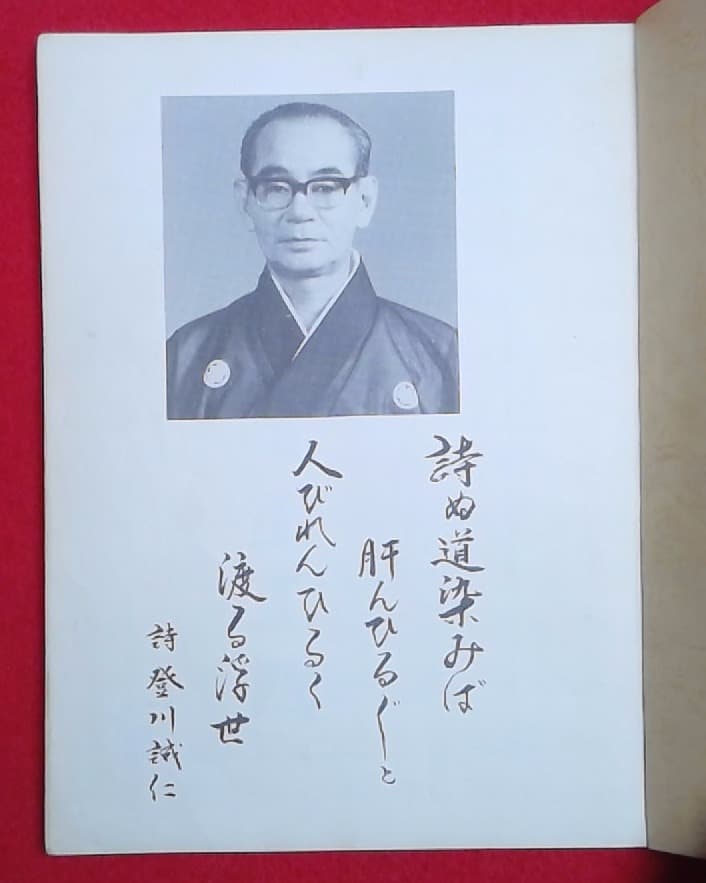 詩ぬ道染みば
肝んひるぐーと
人びれんひるく
渡る浮世
詩 登川誠仁